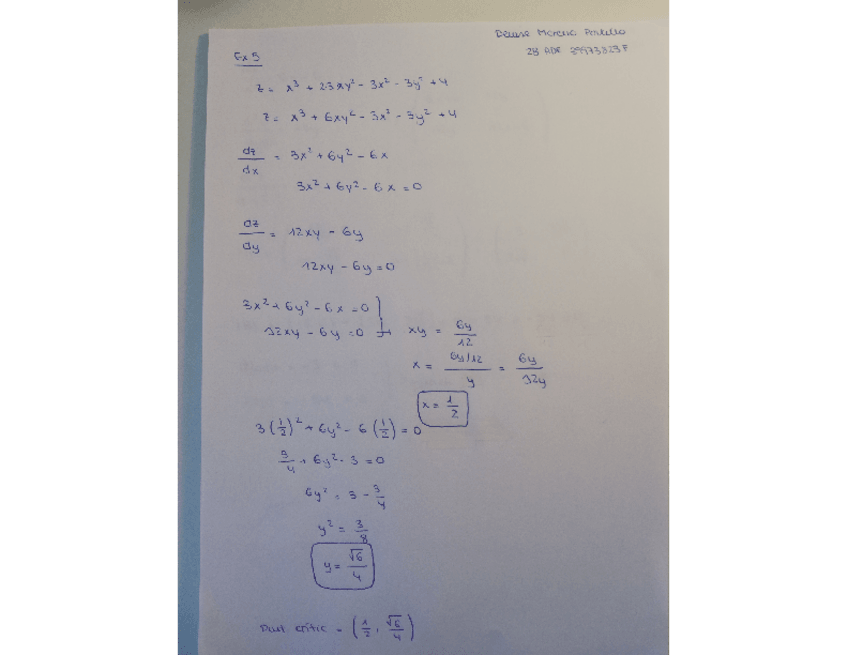 Ex 5
z = x³ + 2·3xy² - 3x² - 3y² + 4
z = x³ + 6xy² - 3x² - 3y² + 4
dz/dx = 3x² + 6y² - 6x
3x² + 6y² - 6x = 0
dz/dy = 12xy - 6y
12xy - 6y = 0
3x² + 6y² - 6x = 0
12xy - 6y = 0 → xy = 6y/12
x = (6y/12)/y = 6y/12y
x = 1/2
3(1/2)² + 6y² - 6(1/2) = 0
3/4 + 6y² - 3 = 0
6y² = 3 - 3/4
y² = 3/8
y = √6/4
Punt crític = (1/2, √6/4)